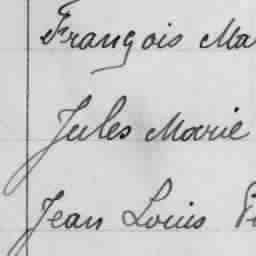 François Ma
Jules Marie
Jean Louis